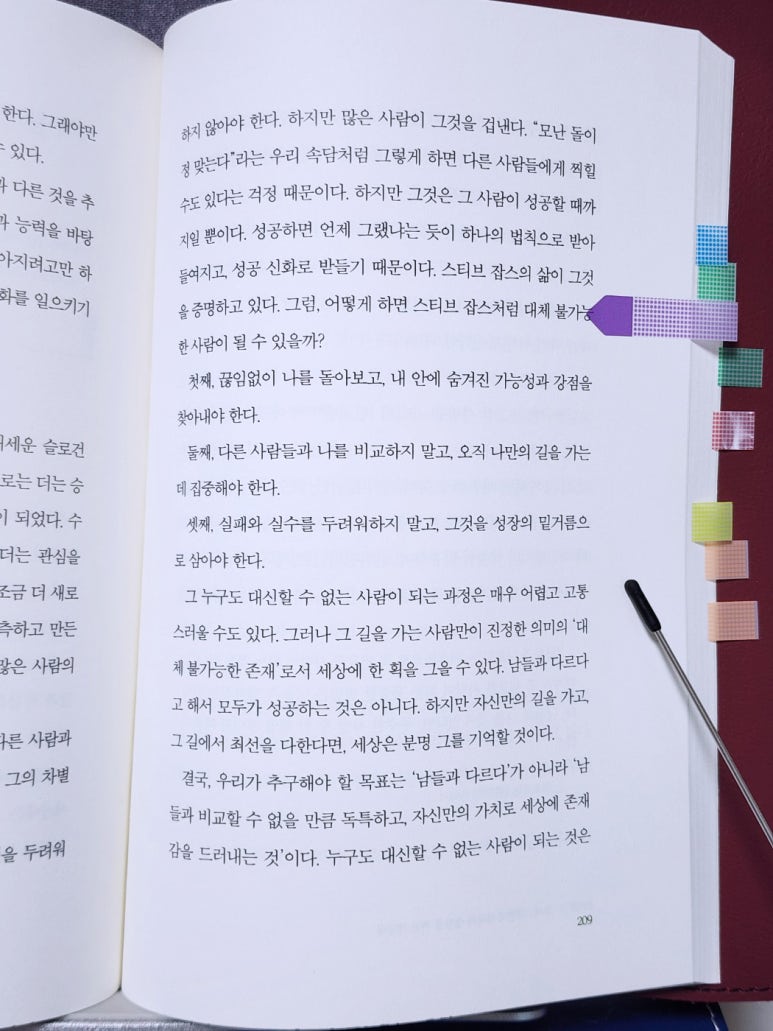 한다. 그래야만
수 있다.
과 다른 것을 추
과 능력을 바탕
아지려고만 하
화를 일으키기
세운 슬로건
로는 더는 승
이 되었다. 수
더는 관심을
조금 더 새로
측하고 만든
많은 사람의
다른 사람과
그의 차별
을 두려워
하지 않아야 한다. 하지만 많은 사람이 그것을 겁낸다. “모난 돌이
정 맞는다”라는 우리 속담처럼 그렇게 하면 다른 사람들에게 찍힐
수도 있다는 걱정 때문이다. 하지만 그것은 그 사람이 성공할 때까
지일 뿐이다. 성공하면 언제 그랬냐는 듯이 하나의 법칙으로 받아
들여지고, 성공 신화로 받들기 때문이다. 스티브 잡스의 삶이 그것
을 증명하고 있다. 그럼, 어떻게 하면 스티브 잡스처럼 대체 불가능
한 사람이 될 수 있을까?
첫째, 끊임없이 나를 돌아보고, 내 안에 숨겨진 가능성과 강점을
찾아내야 한다.
둘째, 다른 사람들과 나를 비교하지 말고, 오직 나만의 길을 가는
데 집중해야 한다.
셋째, 실패와 실수를 두려워하지 말고, 그것을 성장의 밑거름으
로 삼아야 한다.
그 누구도 대신할 수 없는 사람이 되는 과정은 매우 어렵고 고통
스러울 수도 있다. 그러나 그 길을 가는 사람만이 진정한 의미의 ‘대
체 불가능한 존재’로서 세상에 한 획을 그을 수 있다. 남들과 다르다
고 해서 모두가 성공하는 것은 아니다. 하지만 자신만의 길을 가고,
그 길에서 최선을 다한다면, 세상은 분명 그를 기억할 것이다.
결국, 우리가 추구해야 할 목표는 ‘남들과 다르다’가 아니라 ‘남
들과 비교할 수 없을 만큼 독특하고, 자신만의 가치로 세상에 존재
감을 드러내는 것’이다. 누구도 대신할 수 없는 사람이 되는 것은
209